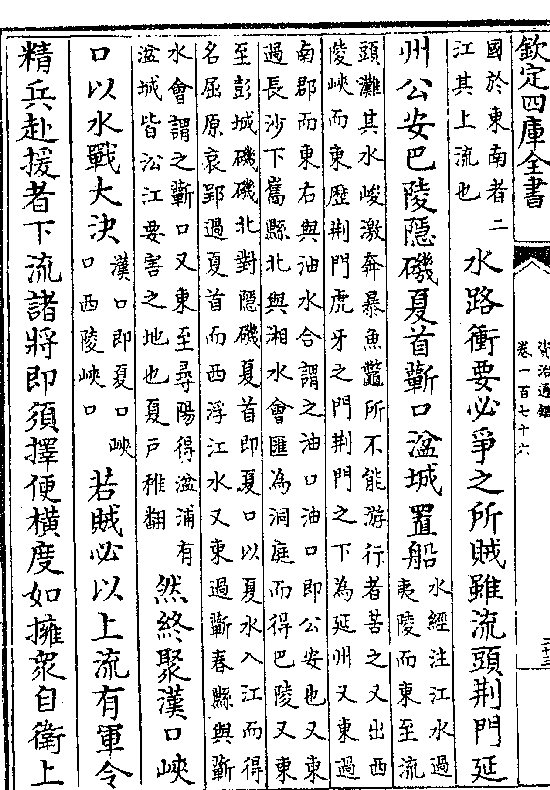 欽定四庫全書
資治通鑑
卷一百七十六
三十三
國於東南者二
江其上流也
水路衝要必爭之所賊雖流頭荆門延
州公安巴陵隱磯夏首蘄口湓城置船
水經注江水過
夷陵而東至流
頭灘其水峻激奔暴魚鼈所不能游行者苦之又出西
陵峽而東歴荆門虎牙之門荆門之下為延州又東過
南郡而東右與油水合謂之油口油口即公安也又東
過長沙下雋縣北與湘水會匯為洞庭而得巴陵又東
至彭城磯磯北對隱磯夏首即夏口以夏水入江而得
名屈原哀郢過夏首而西浮江水又東過蘄春縣與蘄
水會謂之蘄口又東至尋陽得湓浦有
湓城皆㳂江要害之地也夏戶稚翻
然終聚漢口峽
口以水戰大決
漢口即夏口峽
口西陵峽口
若賊必以上流有軍令
精兵赴援者下流諸將即須擇便横度如擁衆自衛上